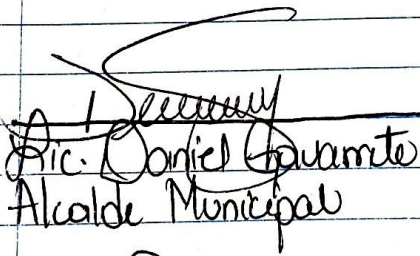 Lic. Daniel Guvarrete
Alcalde Municipal